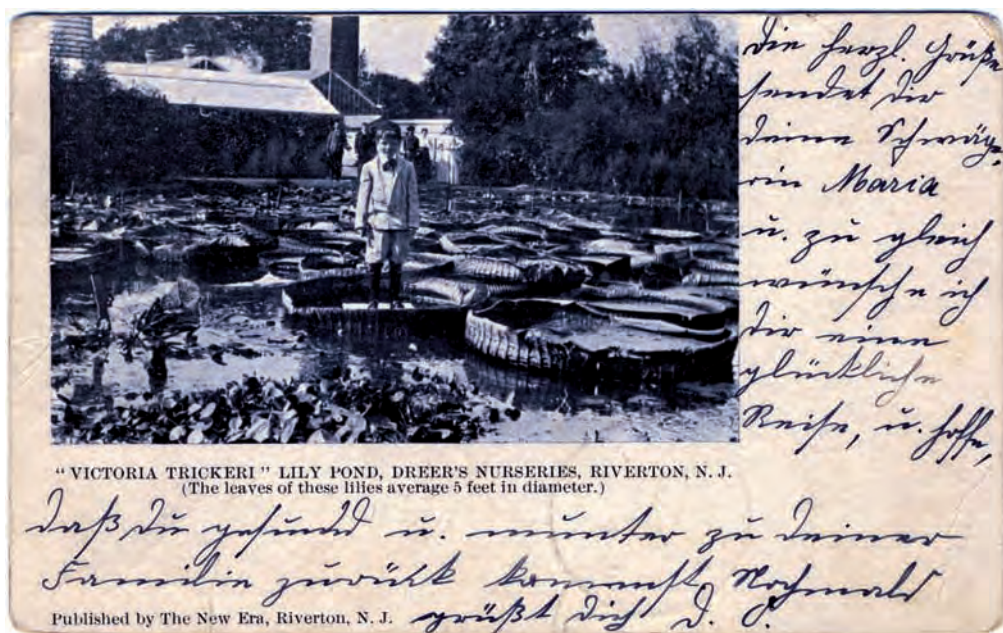 Die herzl. Grüße
sendet dir
deine Schwäge-
rin Maria
u. zu gleich
wünsche ich
dir eine
glückliche
Reise, u. hoffe,
"VICTORIA TRICKERI" LILY POND, DREER'S NURSERIES, RIVERTON, N. J.
(The leaves of these lilies average 5 feet in diameter.)
daß du gesund u. munter zu deiner
Familie zurück kommst, Nochmals
grüßt dich d.
Published by The New Era, Riverton, N. J.